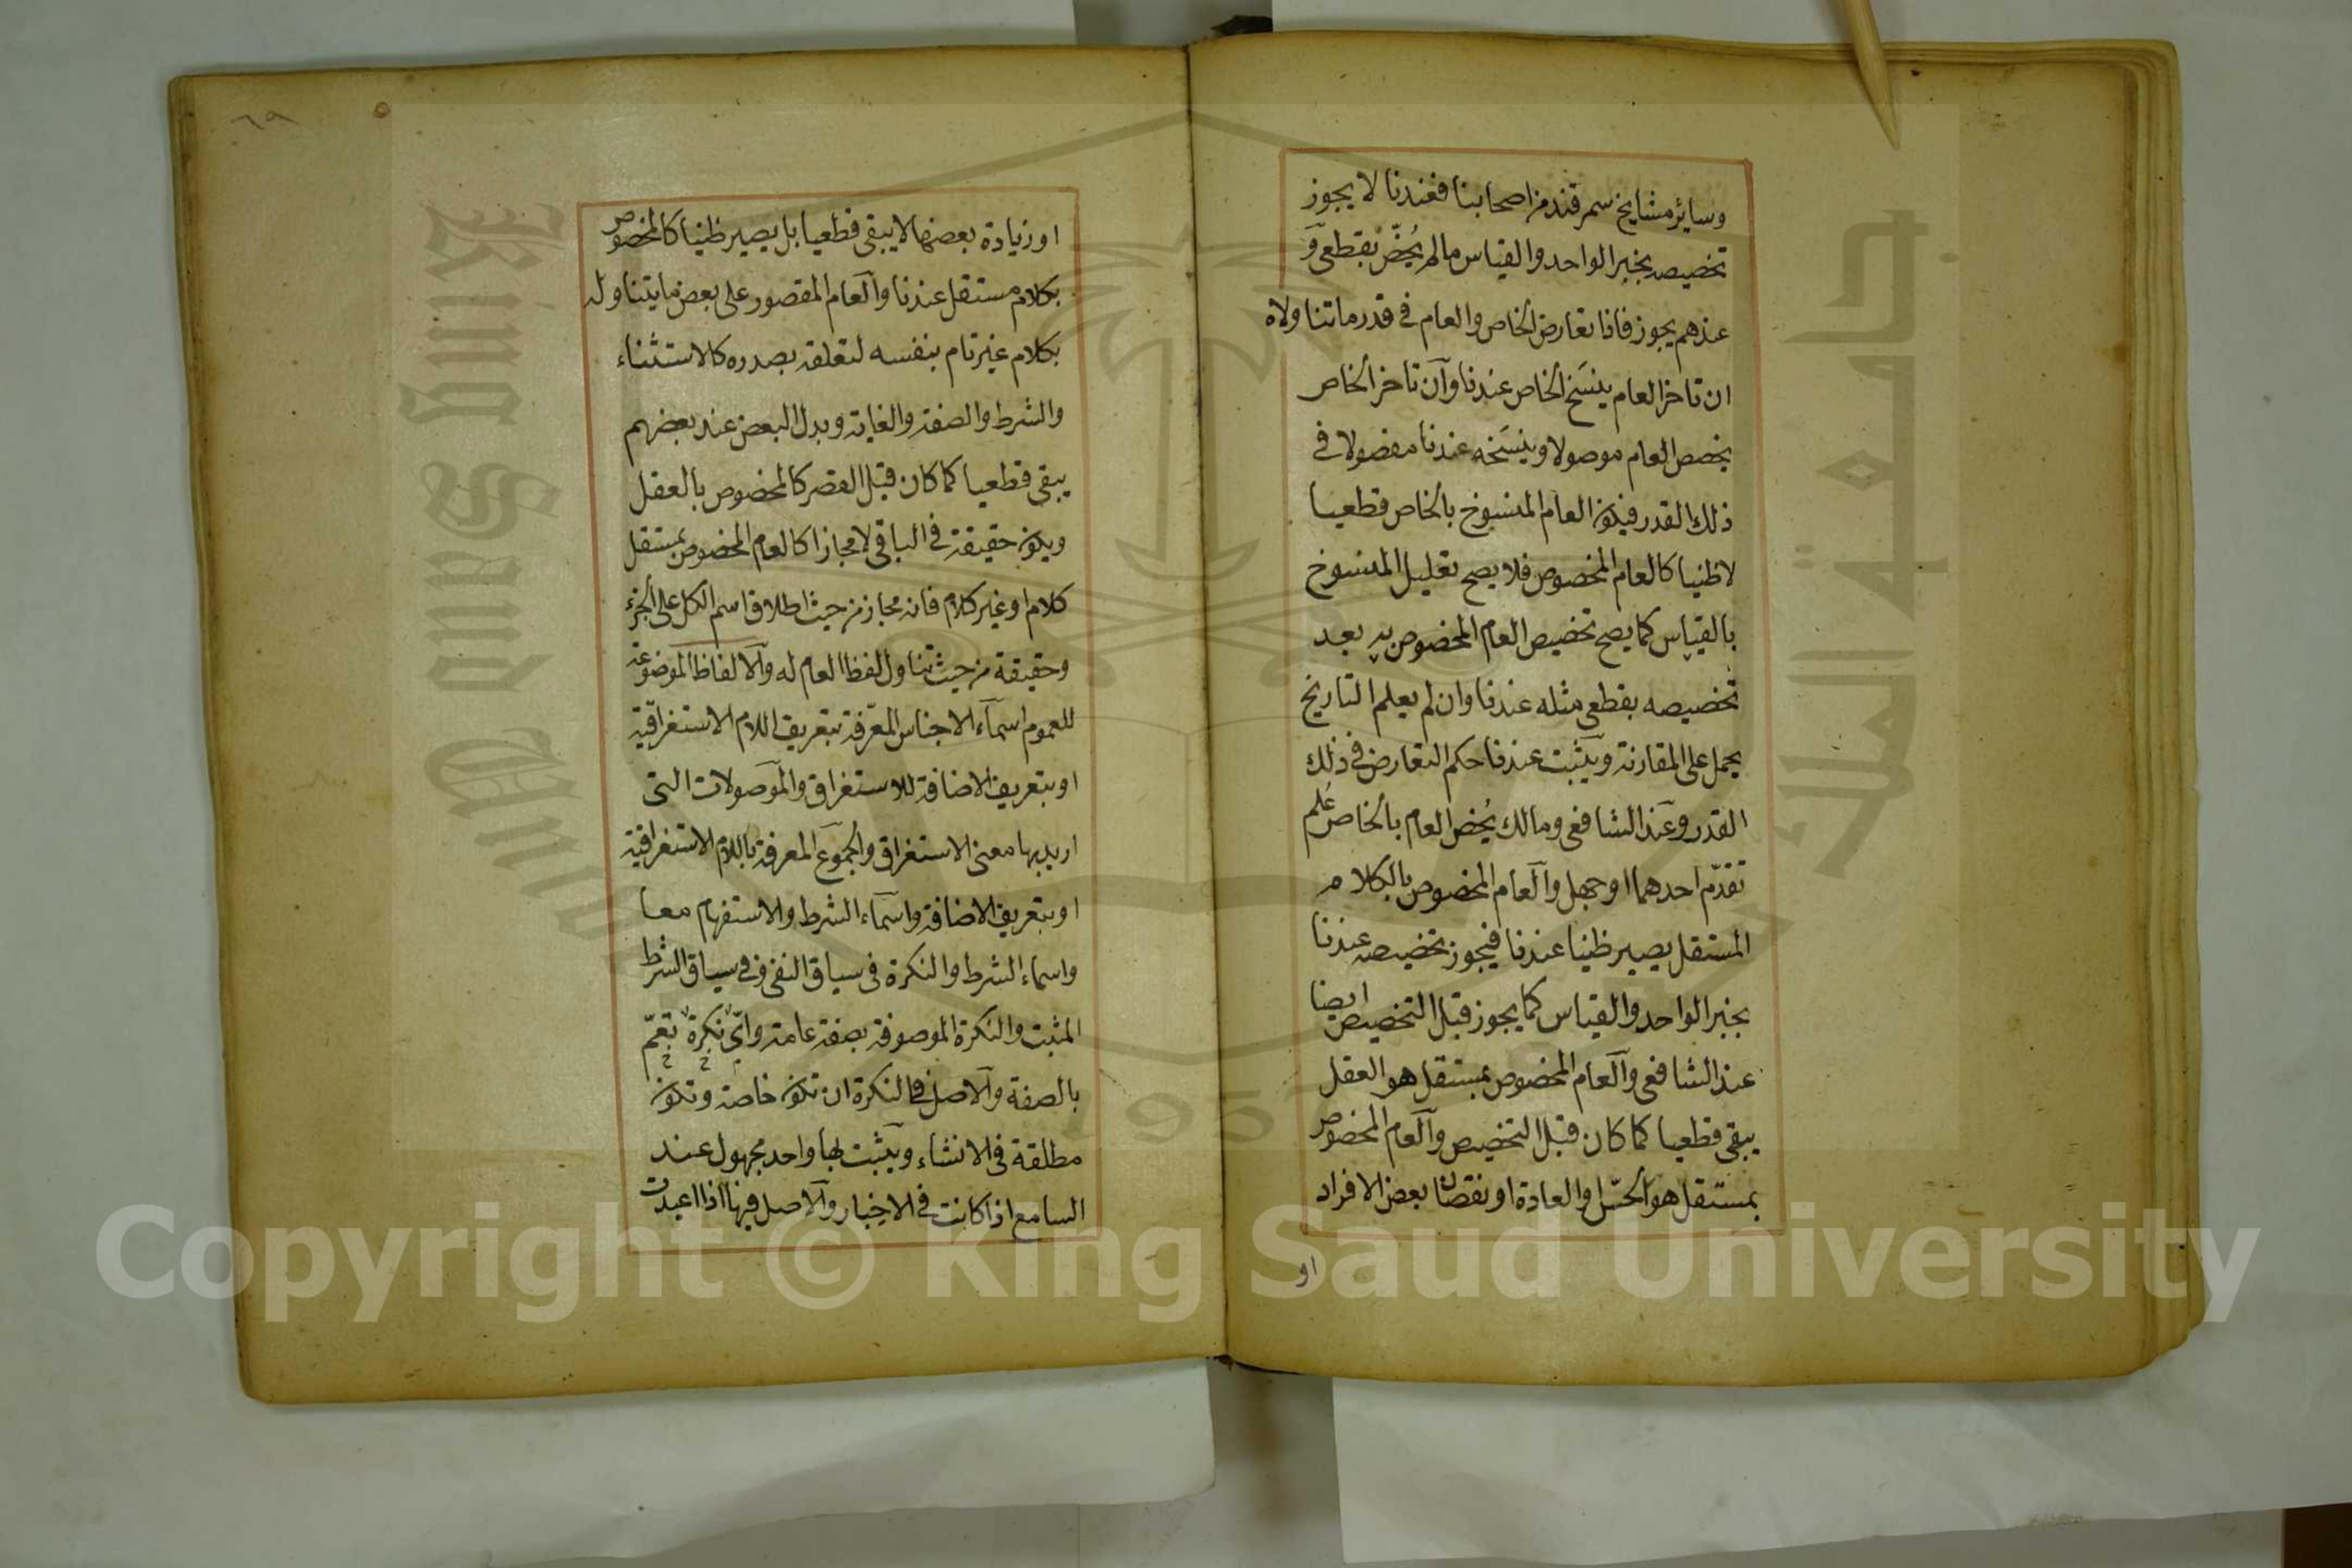 وسائر مشايخ سمرقند من اصحابنا فعندنا لا يجوز
تخصيصه بخبر الواحد والقياس ما لم يُخصّ بقطعى و
عندهم يجوز فاذا تعارض الخاص والعام فى قدر ما تناولاه
ان تاخر العام ينسَخ الخاص عندنا وان تاخر الخاص
يخصص العام موصولا وينسَخه عندنا مفصولا فى
ذلك القدر فيكون العام المنسوخ بالخاص قطعيا
لا ظنيا كالعام المخصوص فلا يصح تعليل المنسوخ
بالقياس كما يصح تخصيص العام المخصوص به بعد
تخصيصه بقطعى مثله عندنا وان لم يعلم التاريخ
يحمل على المقارنة ويثبت عندنا حكم التعارض فى ذلك
القدر وعند الشافعى ومالك يُخص العام بالخاص عُلم
تقدّم احدهما او جهل والعام المخصوص بالكلام
المستقل يصير ظنيا عندنا فيجوز تخصيصه عندنا
بخبر الواحد والقياس كما يجوز قبل التخصيص ايضا
عند الشافعى والعام المخصوص بمستقل هو العقل
يبقى قطعيا كما كان قبل التخصيص والعام المخصوص
بمستقل هو الحسّ او العادة او نقصان بعض الافراد
او
٦٩
او زيادة بعضها لا يبقى قطعيا بل يصير ظنيا كالمخصوص
بكلام مستقل عندنا والعام المقصور على بعض ما يتناوله
بكلام غير تام بنفسه لتعلقه بصدره كالاستثناء
والشرط والصفة والغاية وبدل البعض عند بعضهم
يبقى قطعيا كما كان قبل القصر كالمخصوص بالعقل
ويكون حقيقة فى الباقى لا مجازا كالعام المخصوص بمستقل
كلام او غير كلام فانه مجاز من حيث اطلاق اسم الكل على الجزء
وحقيقة من حيث تناول لفظ العام له والالفاظ الموضوعة
للعموم اسماء الاجناس المعرّفة بتعريف اللام الاستغراقيّة
او بتعريف الاضافة للاستغراق والموصولات التى
اريد بها معنى الاستغراق والجموع المعرفة باللام الاستغراقية
او بتعريف الاضافة واسماء الشرط والاستفهام معا
واسماء الشرط والنكرة فى سياق النفى وفى سياق الشرط
المثبت والنكرة الموصوفة بصفة عامة واىّ نكرة تعمّ
بالصفة والاصل فى النكرة ان تكون خاصة وتكون
مطلقة فى الانشاء ويثبت بها واحد مجهول عند
السامع اذا كانت فى الاخبار والاصل فيها اذا اعيدت
Copyright © King Saud University
جامعة الملك
King Saud Univ
195